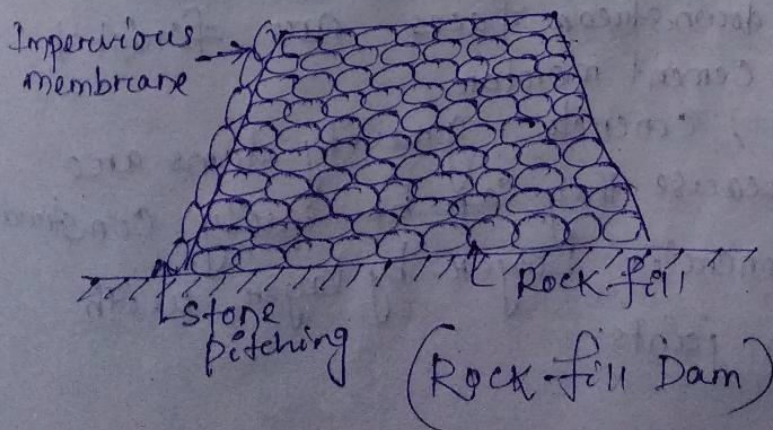 Impervious
membrane
Rock-fill
Stone
pitching
(Rock-fill Dam)